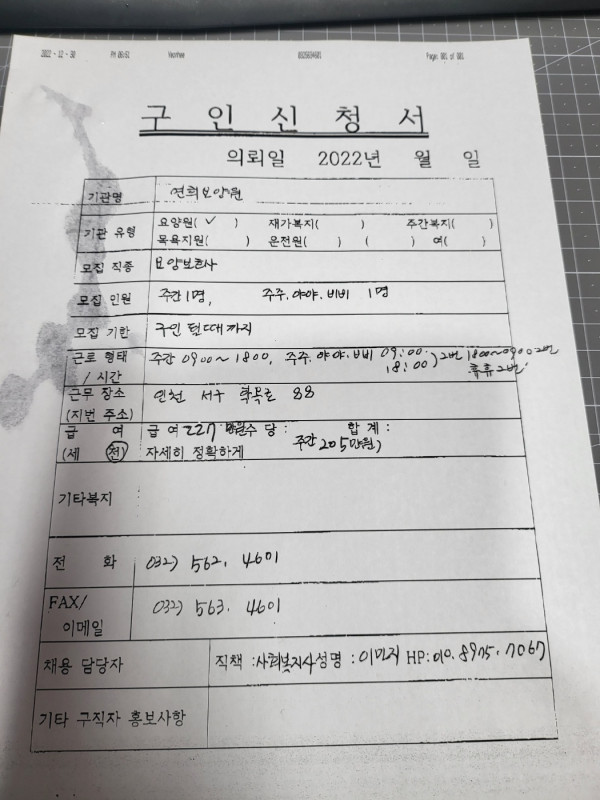 2022 - 12 - 30 PM 06:51 Yeonhee 0325634601 Page: 001 of 001
구 인 신 청 서
의뢰일 2022년 월 일
기관명 연희요양원
기관 유형 요양원( ✓ ) 재가복지( ) 주간복지( )
목욕지원( ) 운전원( ) ( ) 여( )
모집 직종 요양보호사
모집 인원 주간 1명, 주주.야야.비비 1명
모집 기한 구인 될때까지
근로 형태 / 시간 주간 0900~1800, 주주.야야.비비 09:00. 18:00)2번 1800~0900 2번
휴휴2번.
근무 장소 (지번 주소) 인천 서구 88
급 여 급 여 227 만원수 당 : 합 계 :
(세 전) 자세히 정확하게 주간 205만원)
기타복지
전 화 032) 562. 4601
FAX/ 이메일 032) 563. 4601
채용 담당자 직책 :사회복지사성명 : 이민지 HP: 010. 8975. 7067
기타 구직자 홍보사항